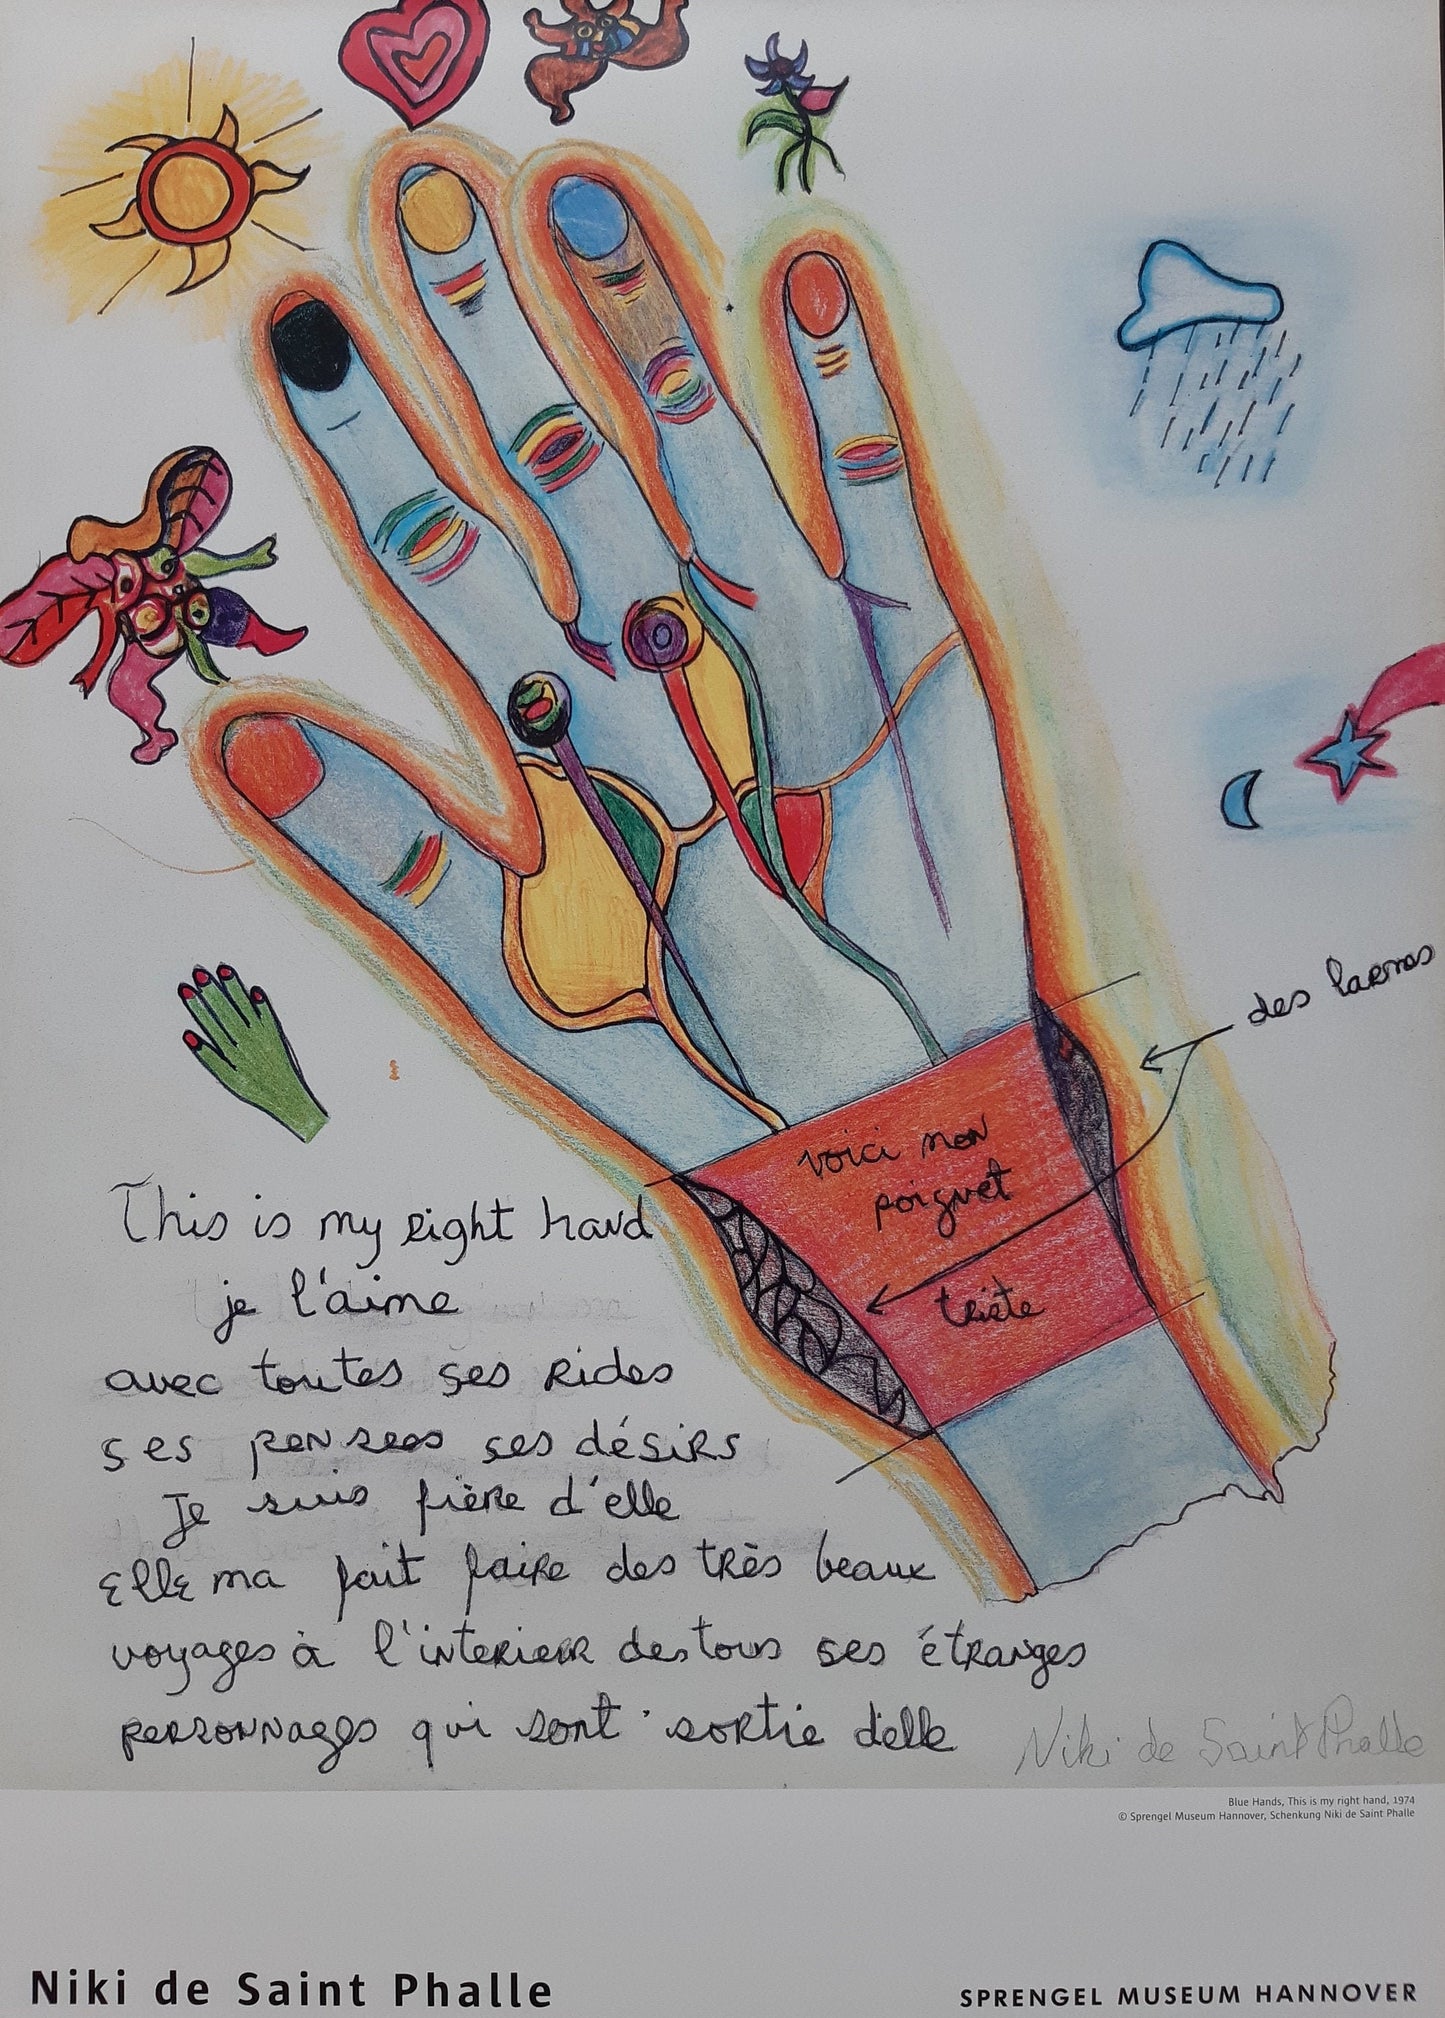 des larmes
voici mon
poignet
triste
This is my right hand
je l'aime
avec toutes ses rides
ses pensees ses désirs
Je suis fière d'elle
Elle ma fait faire des très beaux
voyages à l'interieur des tous ses étranges
personnages qui sont sortie d'elle
Niki de Saint Phalle
Blue Hands, This is my right hand, 1974
© Sprengel Museum Hannover, Schenkung Niki de Saint Phalle
Niki de Saint Phalle
SPRENGEL MUSEUM HANNOVER